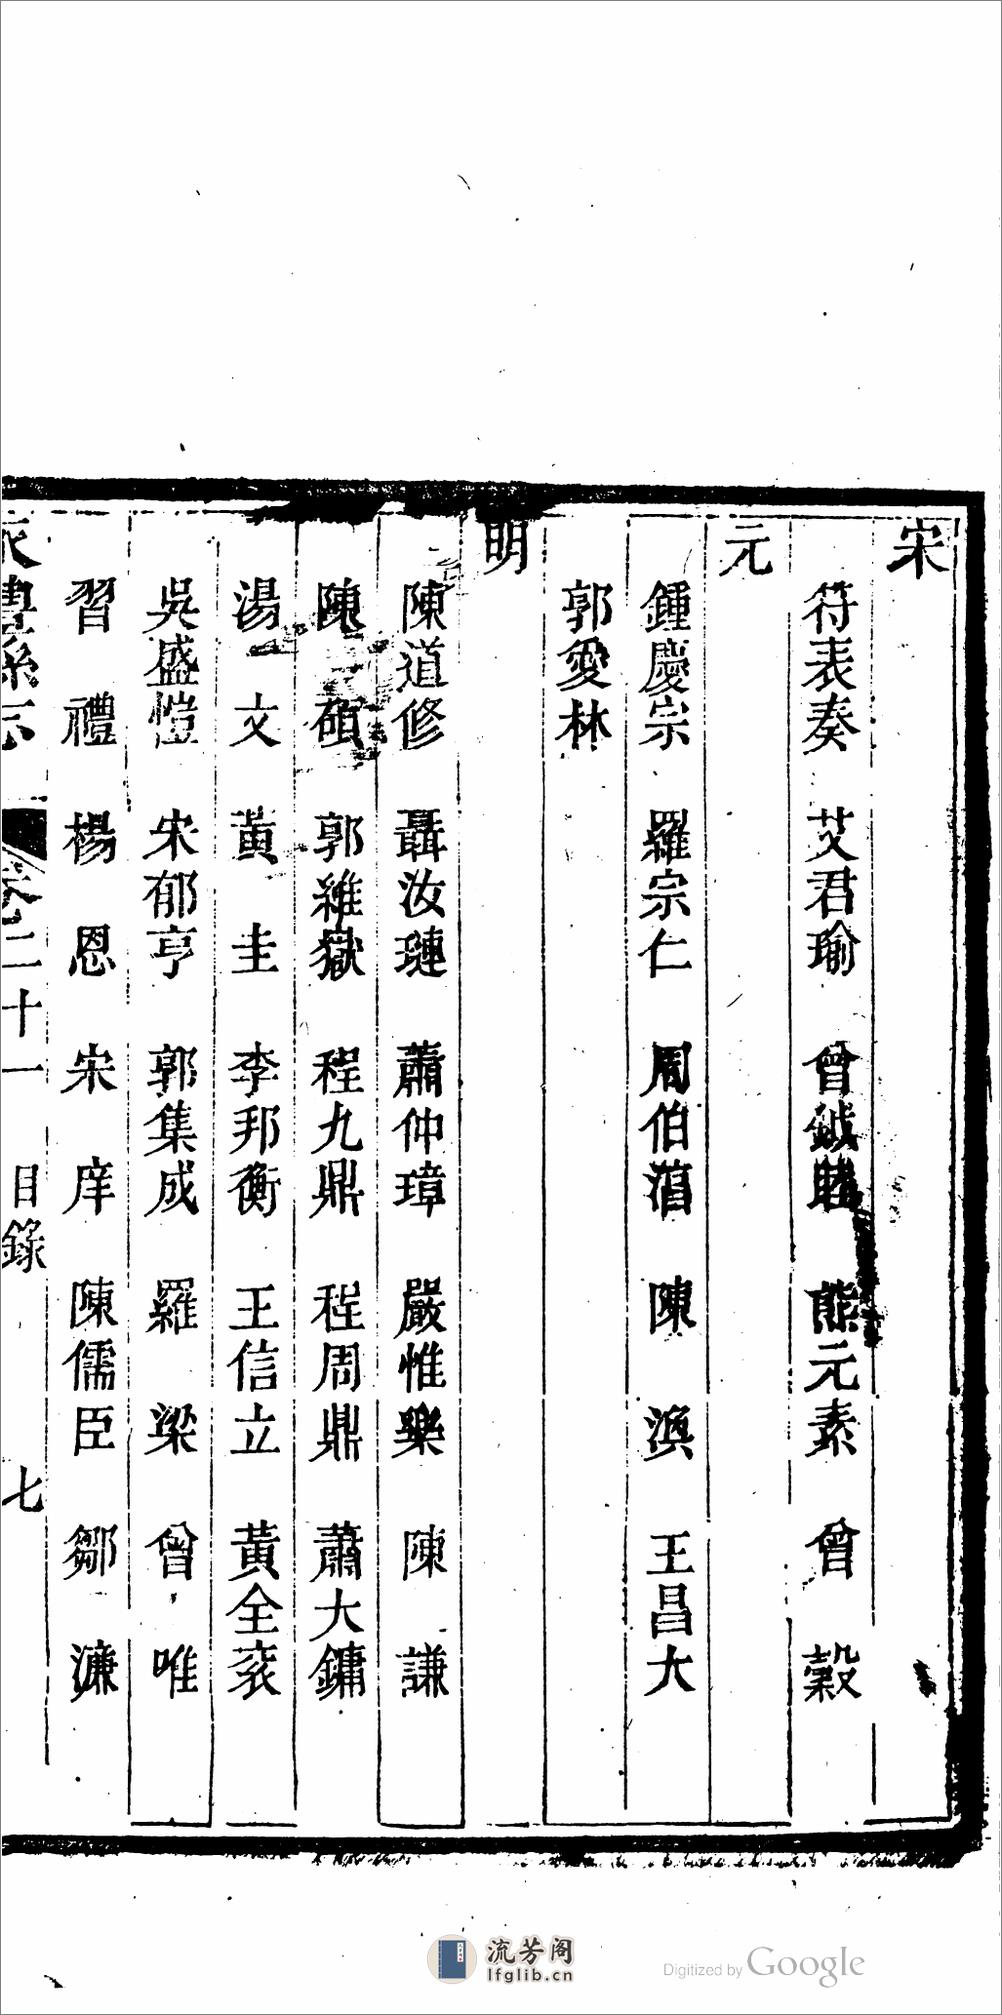 宋
符表奏 艾君瑜 曾鉞 熊元素 曾穀
元
鍾慶宗 羅宗仁 周伯 陳渙 王昌大
郭愛林
明
陳道修 聶汝璉 蕭仲璋 嚴惟樂 陳謙
陳碩 郭維嶽 程九鼎 程周鼎 蕭大鏞
湯文 黃圭 李邦衡 王信立 黃全袞
吳盛愷 宋郁亨 郭集成 羅梁 曾唯
習禮 楊恩 宋庠 陳儒臣 鄒濂
永豐縣志 卷二十一 目錄 七
流芳阁
lfglib.cn
Digitized by Google